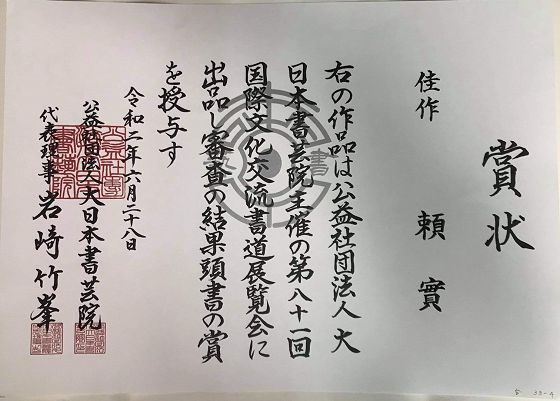 賞状
佳作
頼實
右の作品は公益社団法人大
日本書芸院主催の第八十一回
国際文化交流書道展覧会に
出品し審査の結果頭書の賞
を授与す
令和二年六月二十八日
公益社団法人大日本書芸院
代表理事 岩崎竹峯